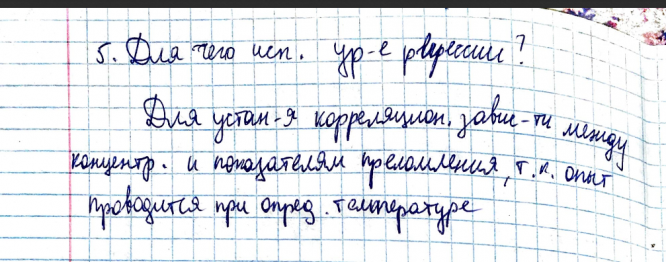 5. Для чего исп. ур-е регрессии?
Для устан-я корреляцион. завис-ти между
концентр. и показателям преломления, т.к. опыт
проводится при опред. температуре